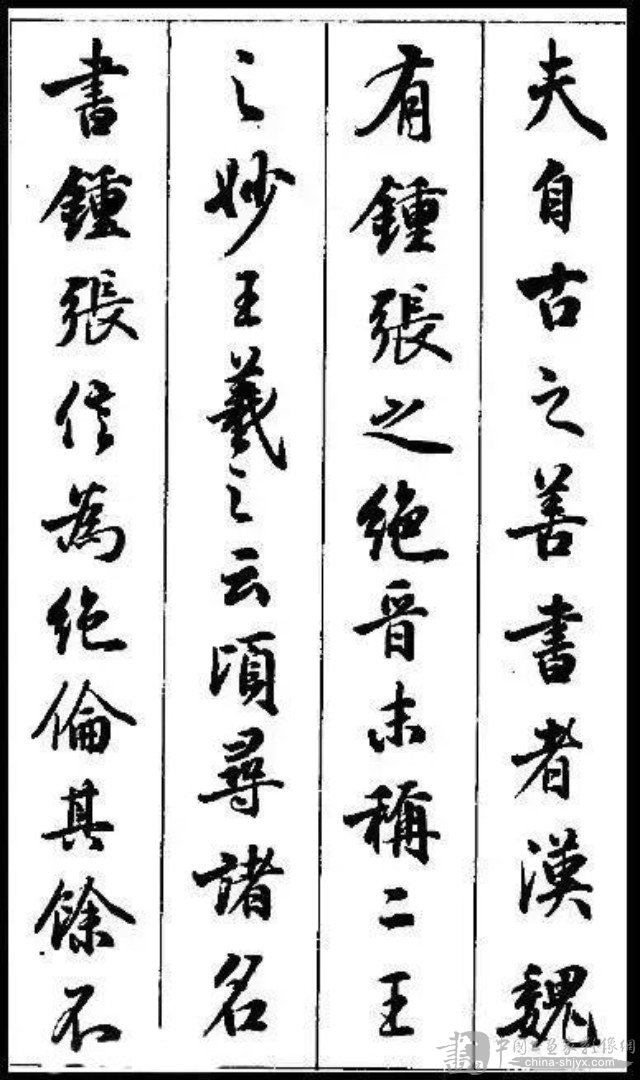 夫自古之善書者漢魏
有鍾張之絕晉末稱二王
之妙王羲之云頃尋諸名
書鍾張信為絕倫其餘不
中国书画家彩像網
china-shjyx.com